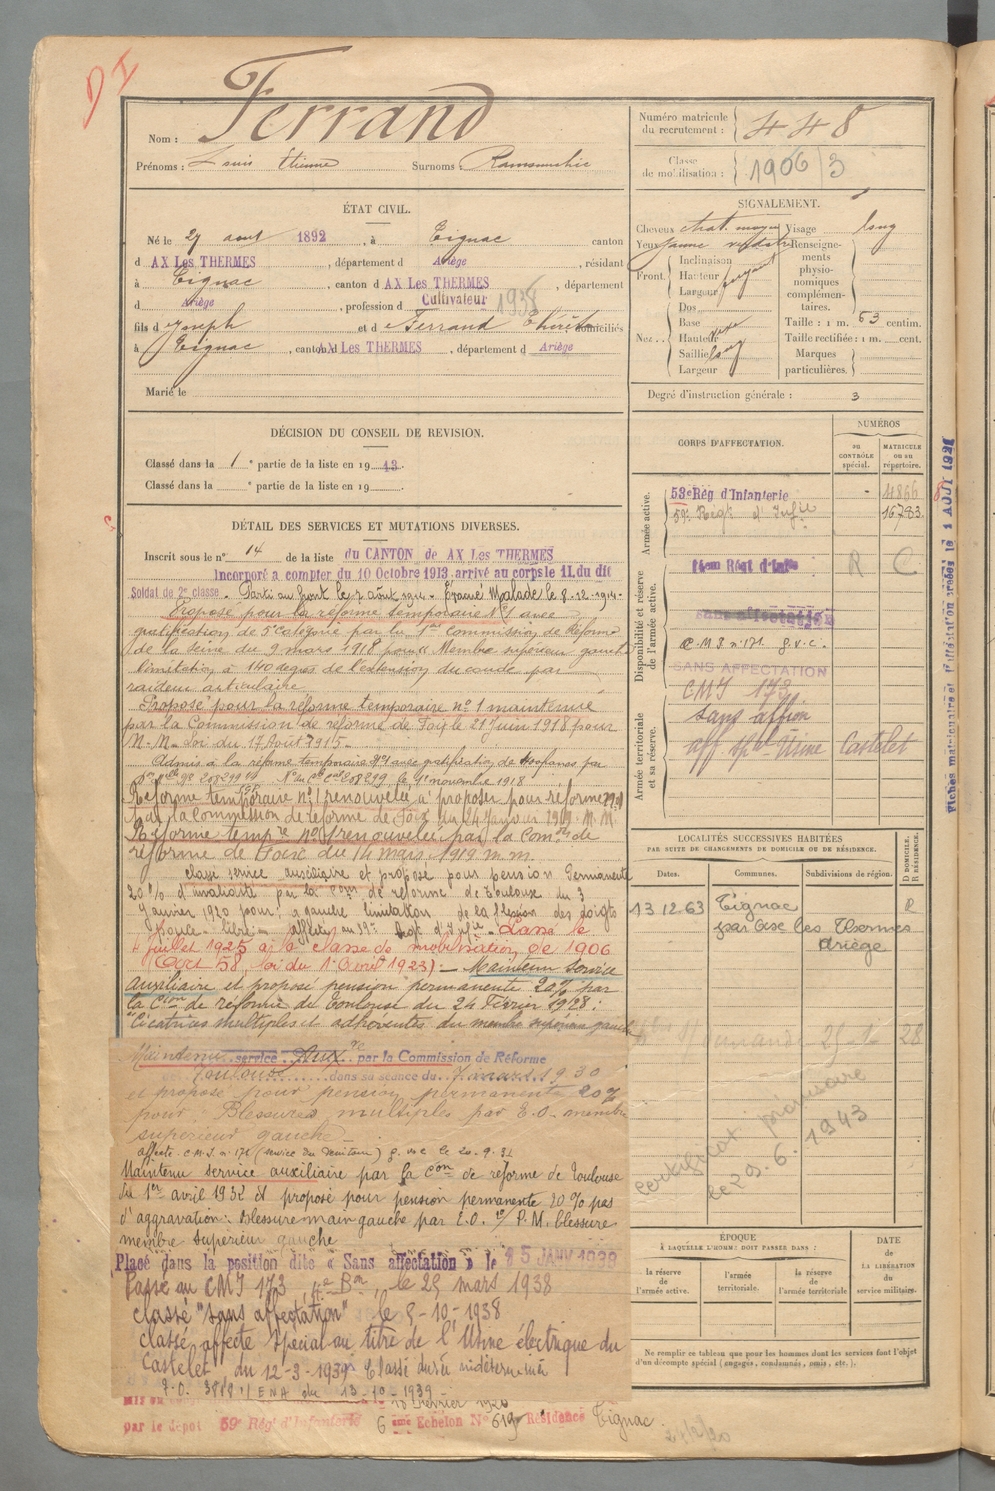 DI
Nom : Ferrand
Prénoms : Louis Etienne Surnoms : Ramounchic
Numéro matricule du recrutement : 448
Classe de mobilisation : 1906/3
ÉTAT CIVIL.
Né le 27 aout 1892, à Tignac canton
d AX LES THERMES, département d Ariège, résidant
à Tignac, canton d AX LES THERMES, département
d Ariège, profession d Cultivateur 1938
fils d Joseph et d Ferrand domiciliés
à Tignac, canton d AX LES THERMES, département d Ariège
Marié le
SIGNALEMENT.
Cheveux chat. moyen Visage long
Yeux jaune verdâtre Renseignements physionomiques complémentaires.
Front. Inclinaison
Hauteur
Largeur
Nez. Dos
Base
Hauteur
Saillie
Largeur
Taille : 1 m. 63 centim.
Taille rectifiée : 1 m. cent.
Marques particulières.
Degré d'instruction générale : 3
DÉCISION DU CONSEIL DE REVISION.
Classé dans la 1e partie de la liste en 1913.
Classé dans la e partie de la liste en 19
DÉTAIL DES SERVICES ET MUTATIONS DIVERSES.
Inscrit sous le n° 14 de la liste du CANTON de AX Les THERMES
Incorporé a compter du 10 Octobre 1913 arrivé au corps le 11 du dit
Soldat de 2e classe. Parti au front le 7 août 1914. Evacué Malade le 8-12-1914.
Proposé pour la réforme temporaire N°1 avec
gratification de 5e catégorie par la 1ère commission de Réforme
de la Seine du 9 mars 1918 pour : Membre supérieur gauche
limitation à 140 degrés de l'extension du coude par
raideur articulaire
Proposé pour la réforme temporaire n° 1 maintenue
par la Commission de réforme de Foix le 21 Juin 1918 pour
M. M. Loi du 17 Août 1915.
Admis à la réforme temporaire N°1 avec gratification de
208299 le 1er novembre 1918
Réforme temporaire n° 1 renouvelée à proposer pour réforme
par la Commission de réforme de Foix du 24 Janvier 1919. M. M.
Réforme tempre n° 1 renouvelée par la Comon de
réforme de Foix du 14 mars 1919 m. m.
classé service auxiliaire et proposé pour pension Permanente
20 % d'invalidité par la Con de réforme de Toulouse du 3
Janvier 1920 pour : a gauche limitation de la flexion des doigts
affecté au 59e Regt d'Infie. Passé le
4 Juillet 1925 à la classe de mobilisation de 1906
(Art 58, loi du 1er Avril 1923) - Maintenu Service
Auxiliaire et proposé pension permanente 20 % par
la Cion de réforme de Toulouse du 24 Février 1928 :
"Cicatrices multiples et adhérentes du membre supérieur gauche
Maintenu service Auxre par la Commission de Réforme
Toulouse dans sa séance du 7 mars 1930
et proposé pour pension permanente 20 %
pour : Blessures multiples par E.O. membre
supérieur gauche
affecté C.M.I. n° 171 (service du territoire) g.v.c le 20.9.31
Maintenu service auxiliaire par la Con de réforme de Toulouse
du 1er avril 1932 et proposé pour pension permanente 20 % pas
d'aggravation : Blessure main gauche par E.O. P.M. blessure
membre supérieur gauche
Placé dans la position dite « Sans affectation » le 15 JANV 1938
Passé au CMI 173, 4e Bon, le 25 mars 1938
classé "sans affectation" le 5-10-1938
classé affecté spécial au titre de l'Usine électrique du
Castelet du 12-3-1939 Classé durée indéterminée
13-10-1939
par le dépôt 59e Rég d'Infanterie 6ème Echelon N° 619 Résidence Tignac.
CORPS D'AFFECTATION.
NUMÉROS
au CONTRÔLE spécial.
MATRICULE ou au répertoire.
Armée active.
53e Rég d'Infanterie - 4866
59e Regt d'Infie 16783
Disponibilité et réserve de l'armée active.
14em Régt d'Infie R C
sans affectation
C.M.I. n° 171. g.v.c.
SANS AFFECTATION
Armée territoriale et sa réserve.
CMI 173
sans affon
aff spal Usine Castelet
Fiches matricule et d'affectation créées le 1 AOUT 1921
LOCALITÉS SUCCESSIVES HABITÉES
PAR SUITE DE CHANGEMENTS DE DOMICILE OU DE RÉSIDENCE.
Dates. Communes. Subdivisions de région. D DOMICILE. R RÉSIDENCE.
13.12.63 Tignac R
par Axe les Thermes
Ariège
28
certificat provisoire
le 29.6.1943
ÉPOQUE
À LAQUELLE L'HOMME DOIT PASSER DANS :
la réserve de l'armée active.
l'armée territoriale.
la réserve de l'armée territoriale
DATE de LA LIBÉRATION du service militaire.
Ne remplir ce tableau que pour les hommes dont les services font l'objet
d'un décompte spécial (engagés, condamnés, omis, etc.).